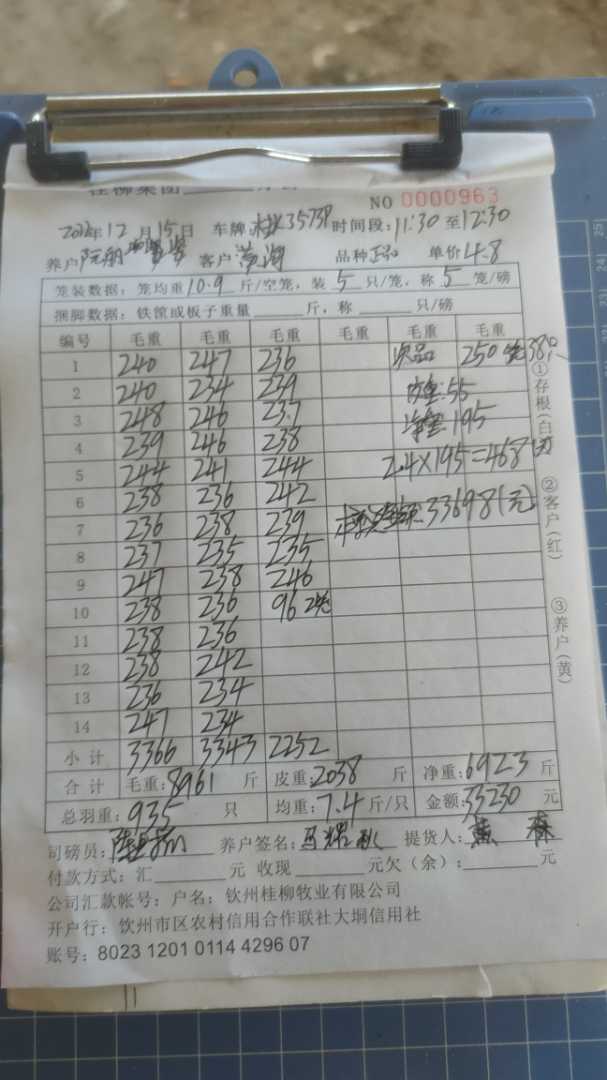 桂柳集团
NO 0000963
2022年12月15日 车牌:桂K3573P 时间段:11:30 至12:30
养户 客户:黄湖 品种正品 单价4.8
笼装数据:笼均重10.9斤/空笼,装5只/笼,称5笼/磅
捆脚数据:铁筐或板子重量 斤,称 只/磅
编号 毛重 毛重 毛重 毛重 毛重 毛重
1 240 247 236 次品 250 38只
2 240 234 239 皮重:55
3 248 246 237 净重:195
4 239 246 238
5 244 241 244 2.4×195=468
6 238 236 242
7 236 238 239 33698(元)
8 237 235 235
9 247 238 246
10 238 236 96 2笼
11 238 236
12 238 242
13 236 234
14 247 234
小计 3366 3343 2252
合计 毛重:8961 斤 皮重:2038 斤 净重:6923 斤
总羽重:935 只 均重:7.4斤/只 金额:33230 元
司磅员: 养户签名: 提货人:黄森
付款方式:汇 元 收现 元欠(余): 元
公司汇款帐号:户名:钦州桂柳牧业有限公司
开户行:钦州市区农村信用合作联社大垌信用社
账号:8023 1201 0114 4296 07
①存根(白)
②客户(红)
③养户(黄)